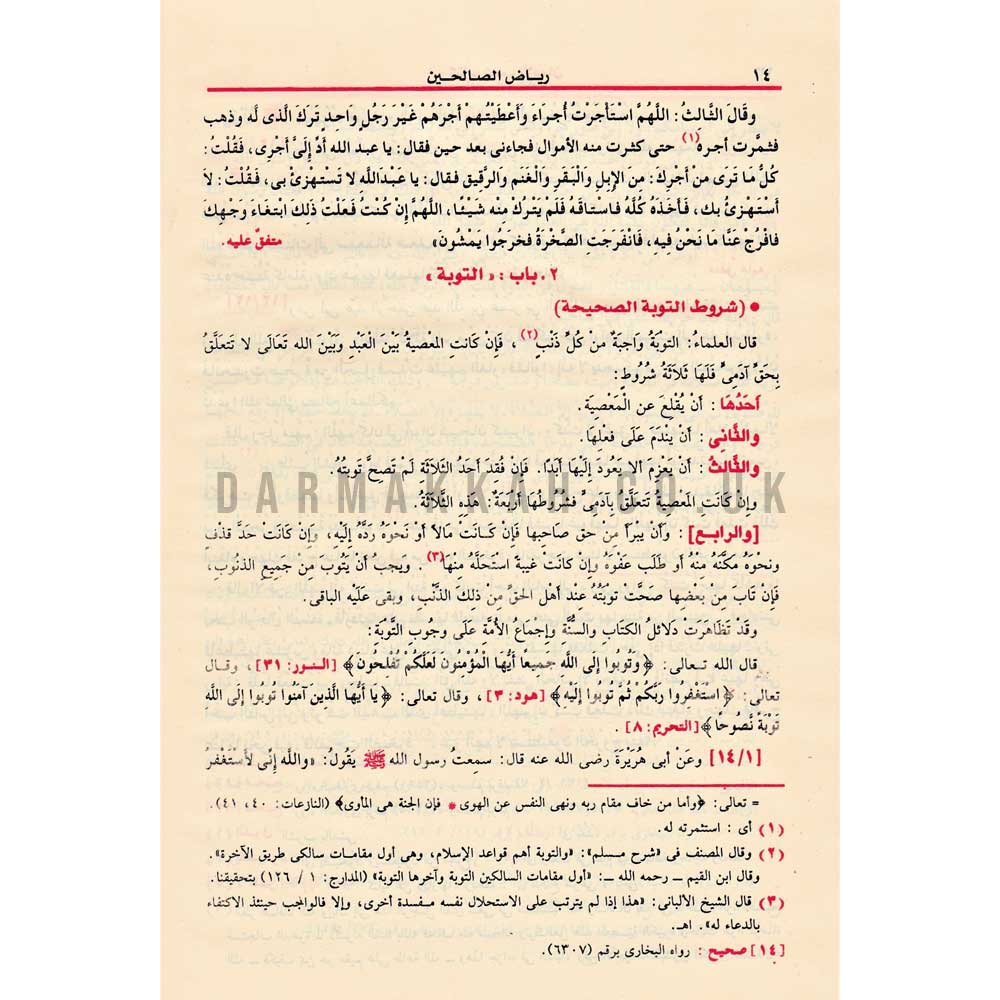 ١٤
ريـاض الصـالحـين
وقَالَ الثَّالثُ: اللَّهُمَّ اسْتَأجَرْتُ أُجرَاءَ وَأعْطَيْتُـهمْ أجْرَهُمْ غَيْرَ رَجُلٍ وَاحدٍ تَركَ الَّذى لَه وذهب
فثمَّرت أجرهُ (١) حتى كثرت منه الأموال فجاءنى بعد حين فقال: يا عبد الله أدِّ إلىَّ أجْرِى، فَقُلْتُ:
كُلُّ مَا تَرَى منْ أجْرِكَ: مِنَ الإبِلِ وَالْبَقَرِ وَالْغَنَم وَالرَّقِيقِ فـقال: يا عَبْدَاللَّه لا تَسْتـهْزئْ بى، فَـقُلْتُ: لاَ
أسْتَـهْزئُ بك، فَـأخَذَهُ كُلَّهُ فـاسْتاقَهُ فَلَمْ يَتْرُكْ منْه شَيْـئًا، اللَّهمَّ إنْ كُنْتُ فَعَلْتُ ذَلكَ ابْتغَاءَ وَجْهِكَ
فافْرُجْ عَنَّا مَا نَحْنُ فيهِ، فَانْفَرَجَتِ الصَّخْرَةُ فخرَجُوا يَمْشُونَ» متفقٌ عليه.
٢. باب: «التوبة»
● (شروط التوبة الصحيحة)
قال العلماءُ: التوبَةُ وَاجبَةٌ منْ كُلِّ ذَنْبٍ (٢)، فَإن كَانَتِ المَعْصيةُ بَيْنَ الْعَبْدِ وَبَيْنَ الله تَعَالَى لا تَتعَلَّقُ
بِحَقِّ آدَمىٍّ فَلَهَا ثَلاثَةُ شُرُوطٍ:
أحَدُهَا: أنْ يُقْلِعَ عن الْمَعْصِيَة.
والثَّانِى: أنْ يَنْدَمَ عَلَى فعْلِهَا.
والثَّالثُ: أنْ يَعْزِمَ ألا يَعُودَ إلَيْهَا أبَدًا. فَإنْ فُقِدَ أحَدُ الثَّلاثَة لَمْ تَصِحَّ تَوبَتُهُ.
وإنْ كَانَتِ المَعْصيةُ تَتَعلَّقُ بآدَمىٍّ فشُرُوطُهَا أرْبَعَةٌ: هَذِهِ الثَّلاثَةُ.
[والرابع]: وَأنْ يَبْرأ منْ حق صَاحبها فَإنْ كَـانَتْ مَالاً أوْ نَحْوَهُ رَدَّهُ إلَيْه، وَإنْ كَانَتْ حَدَّ قذْفٍ
ونحْوَهُ مكَّنَهُ منْهُ أو طَلَبَ عَفْوَهُ وَإنْ كانَتْ غيبةً اسْتَحَلَّهُ منْهَا (٣). ويَجبُ أنْ يَتُوبَ منْ جَميعِ الذنُوبِ،
فَإنْ تابَ مِنْ بَعْضِهَا صَحَّتْ تَوْبَتُهُ عنْدَ أهْلِ الحَقِّ مِنْ ذلِكَ الذَّنْبِ، وبقى عَلَيْه الباقى.
وقَدْ تَظَاهَرَتْ دَلائلُ الكتَابِ والسُّنَّةِ وإجمَاعُ الأُمَّةِ عَلَى وجُوبِ التَّوْبَةِ:
قال الله تـعالى: ﴿وَتُوبُوا إلَى اللَّهِ جَمِيعًا أَيُّهَا الْمُؤْمِنُونَ لَعَلَّكُمْ تُفْلِحُونَ﴾ [النـور: ٣١]، وقـال
تعالى: ﴿اسْتَغْفِرُوا رَبَّكُمْ ثُمَّ تُوبُوا إلَيْهِ﴾ [هود: ٣]، وقال تعالى: ﴿يَا أَيُّهَا الَّذِينَ آمَنُوا تُوبُوا إلَى اللَّهِ
تَوْبَةً نَّصُوحًا﴾ [التحريم: ٨].
[١٤/١] وعَنْ أبى هُرَيْرَةَ رَضى الله عنه قال: سَمِعتُ رَسول الله ﷺ يَقُولُ: «واللَّه إنِّى لأَسْتَغْفِرُ
= تعالى: ﴿وأما من خاف مقام ربه ونهى النفس عن الهوى * فإن الجنة هى المأوى﴾ (النازعات: ٤٠، ٤١).
(١) أى: استثمرته له.
(٢) وقال المصنف فى «شرح مسلم»: «والتوبة أهم قواعد الإسلام، وهى أول مقامات سالكى طريق الآخرة».
وقال ابن القيم ـ رحمه الله ـ: «أول مقامات السالكين التوبة وآخرها التوبة» (المدارج: ١ / ١٢٦) بتحقيقنا.
(٣) قال الشيخ الألبانى: «هذا إذا لم يترتب على الاستحلال نفسه مـفسدة أخرى، وإلا فالواجب حينئذ الاكتفاء
بالدعاء له». اهـ.
[١٤] صحيح: رواه البخارى برقم (٦٣٠٧).
DARMAKKAH.CO.UK